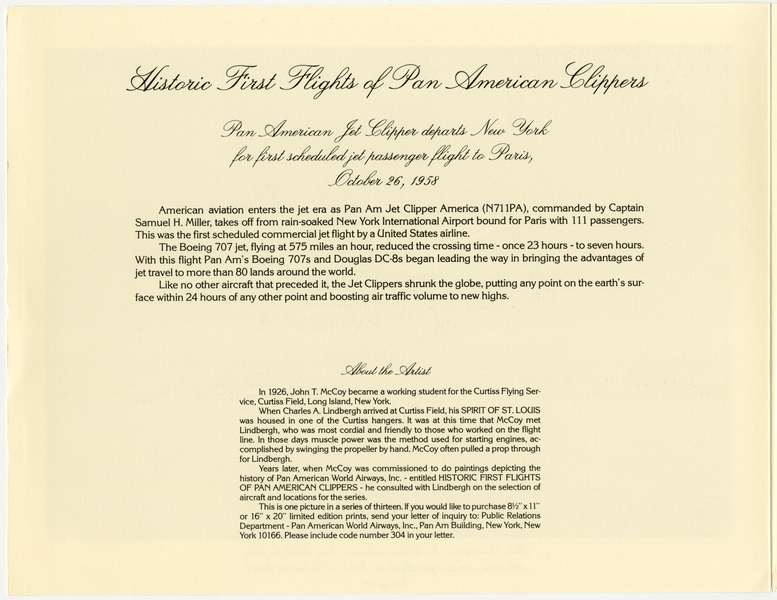 Historic First Flights of Pan American Clippers
Pan American Jet Clipper departs New York
for first scheduled jet passenger flight to Paris,
October 26, 1958
American aviation enters the jet era as Pan Am Jet Clipper America (N711PA), commanded by Captain
Samuel H. Miller, takes off from rain-soaked New York International Airport bound for Paris with 111 passengers.
This was the first scheduled commercial jet flight by a United States airline.
The Boeing 707 jet, flying at 575 miles an hour, reduced the crossing time - once 23 hours - to seven hours.
With this flight Pan Am's Boeing 707s and Douglas DC-8s began leading the way in bringing the advantages of
jet travel to more than 80 lands around the world.
Like no other aircraft that preceded it, the Jet Clippers shrunk the globe, putting any point on the earth's sur-
face within 24 hours of any other point and boosting air traffic volume to new highs.
About the Artist
In 1926, John T. McCoy became a working student for the Curtiss Flying Ser-
vice, Curtiss Field, Long Island, New York.
When Charles A. Lindbergh arrived at Curtiss Field, his SPIRIT OF ST. LOUIS
was housed in one of the Curtiss hangers. It was at this time that McCoy met
Lindbergh, who was most cordial and friendly to those who worked on the flight
line. In those days muscle power was the method used for starting engines, ac-
complished by swinging the propeller by hand. McCoy often pulled a prop through
for Lindbergh.
Years later, when McCoy was commissioned to do paintings depicting the
history of Pan American World Airways, Inc. - entitled HISTORIC FIRST FLIGHTS
OF PAN AMERICAN CLIPPERS - he consulted with Lindbergh on the selection of
aircraft and locations for the series.
This is one picture in a series of thirteen. If you would like to purchase 8½" x 11"
or 16" x 20" limited edition prints, send your letter of inquiry to: Public Relations
Department - Pan American World Airways, Inc., Pan Am Building, New York, New
York 10166. Please include code number 304 in your letter.